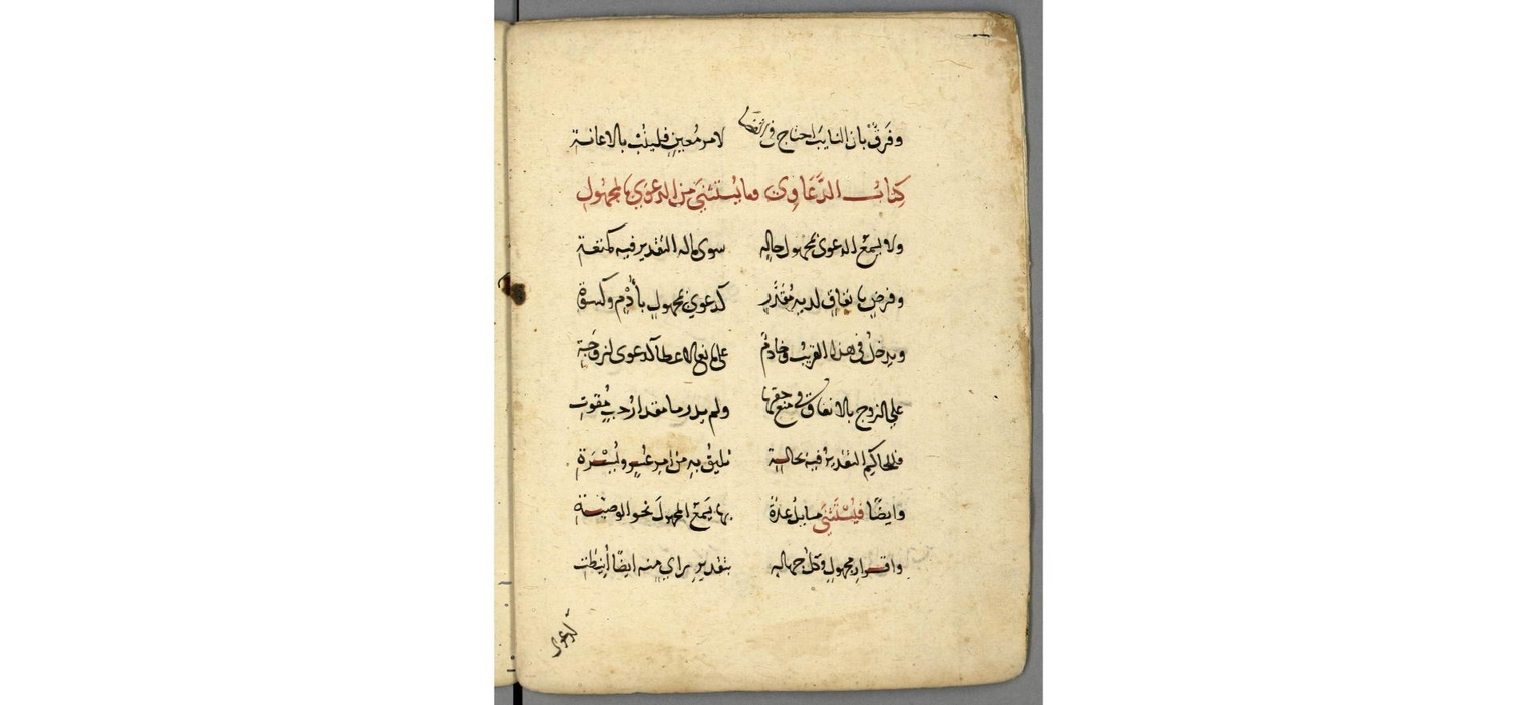 وفرق بان النايب احتاج في القضا لامر معين فليثب بالاعانة
كتاب الدعاوى وما يستثنى من الدعوى بالمجهول
ولا يسمع الدعوى بمجهول حاله سوى ماله التقدير فيه كمتعة
وفرض لديه مقدر كدعوى بمجهول بأدم وكسوة
ويدخل في هذا القريب وخادم على الاعطا كدعوى لزوجة
على الزوج بالانفاق في منع حقها ولم يدر ما مقدار
وللحاكم التقدير فيه بحاله يليق به من امر عسر ويسرة
وايضا فيستثنى مسايل عدة بها يسمع المجهول نحو الوصية
واقرار مجهول وكل جهالة بتقدير راي منه ايضا أنيطت
كدعوى